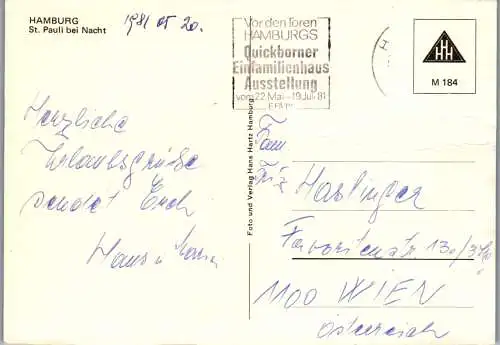 HAMBURG
St. Pauli bei Nacht
1981 05 20.
Vor den Toren
HAMBURGS
Quickborner
Einfamilienhaus
Ausstellung
vom 22. Mai - 19. Juli 81
HHH
M 184
Herzliche
Urlaubsgrüße
sendet Euch
Hans u.
Foto und Verlag Hans Hartz Hamburg
Fam
Haslinger
Favoritenstr 130/3/10
1100 WIEN
Österreich